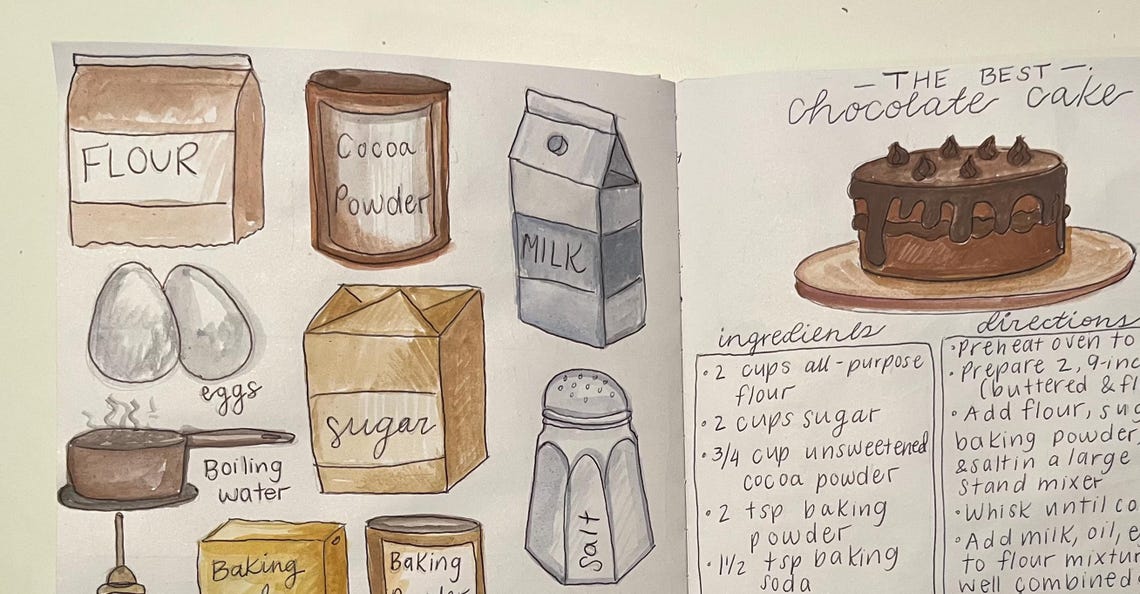 FLOUR
Cocoa
Powder
MILK
eggs
sugar
Boiling
water
Salt
Baking
Baking
Powder
— THE BEST —
chocolate cake
ingredients
• 2 cups all-purpose
flour
• 2 cups sugar
• 3/4 cup unsweetened
cocoa powder
• 2 tsp baking
powder
• 1 1/2 tsp baking
soda
directions
• Preheat oven to
• Prepare 2, 9-inc
(buttered & fl
• Add flour, sug
baking powder,
& salt in a large
stand mixer
• Whisk until co
• Add milk, oil, e
to flour mixtur
well combined